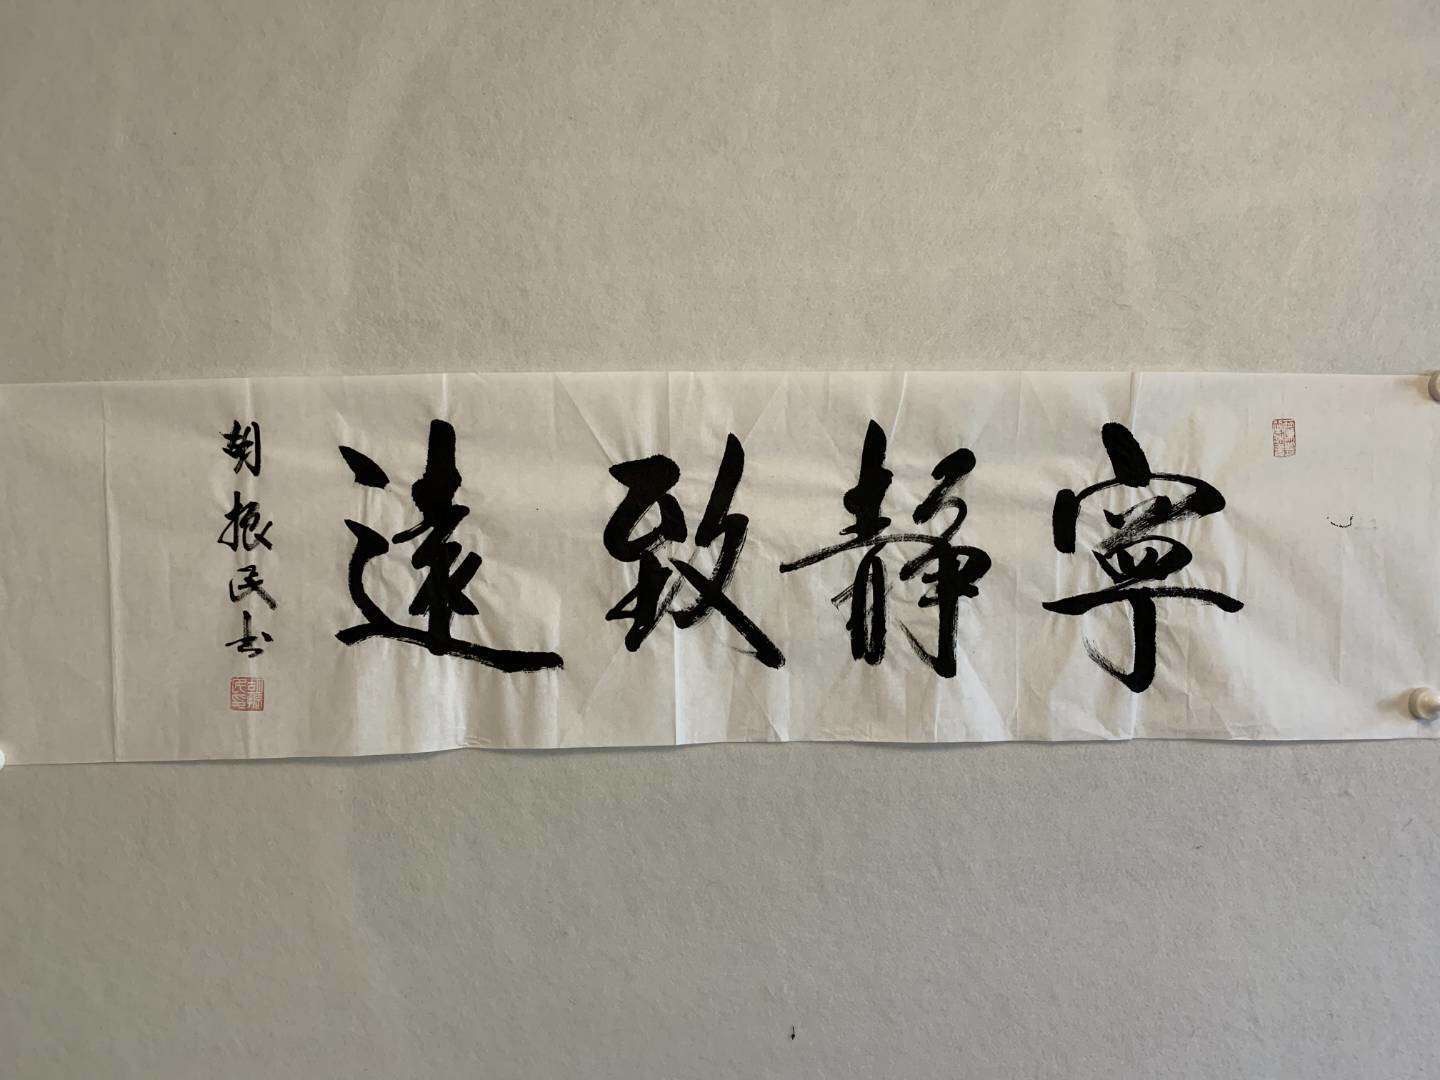 寧靜致遠
胡振民书